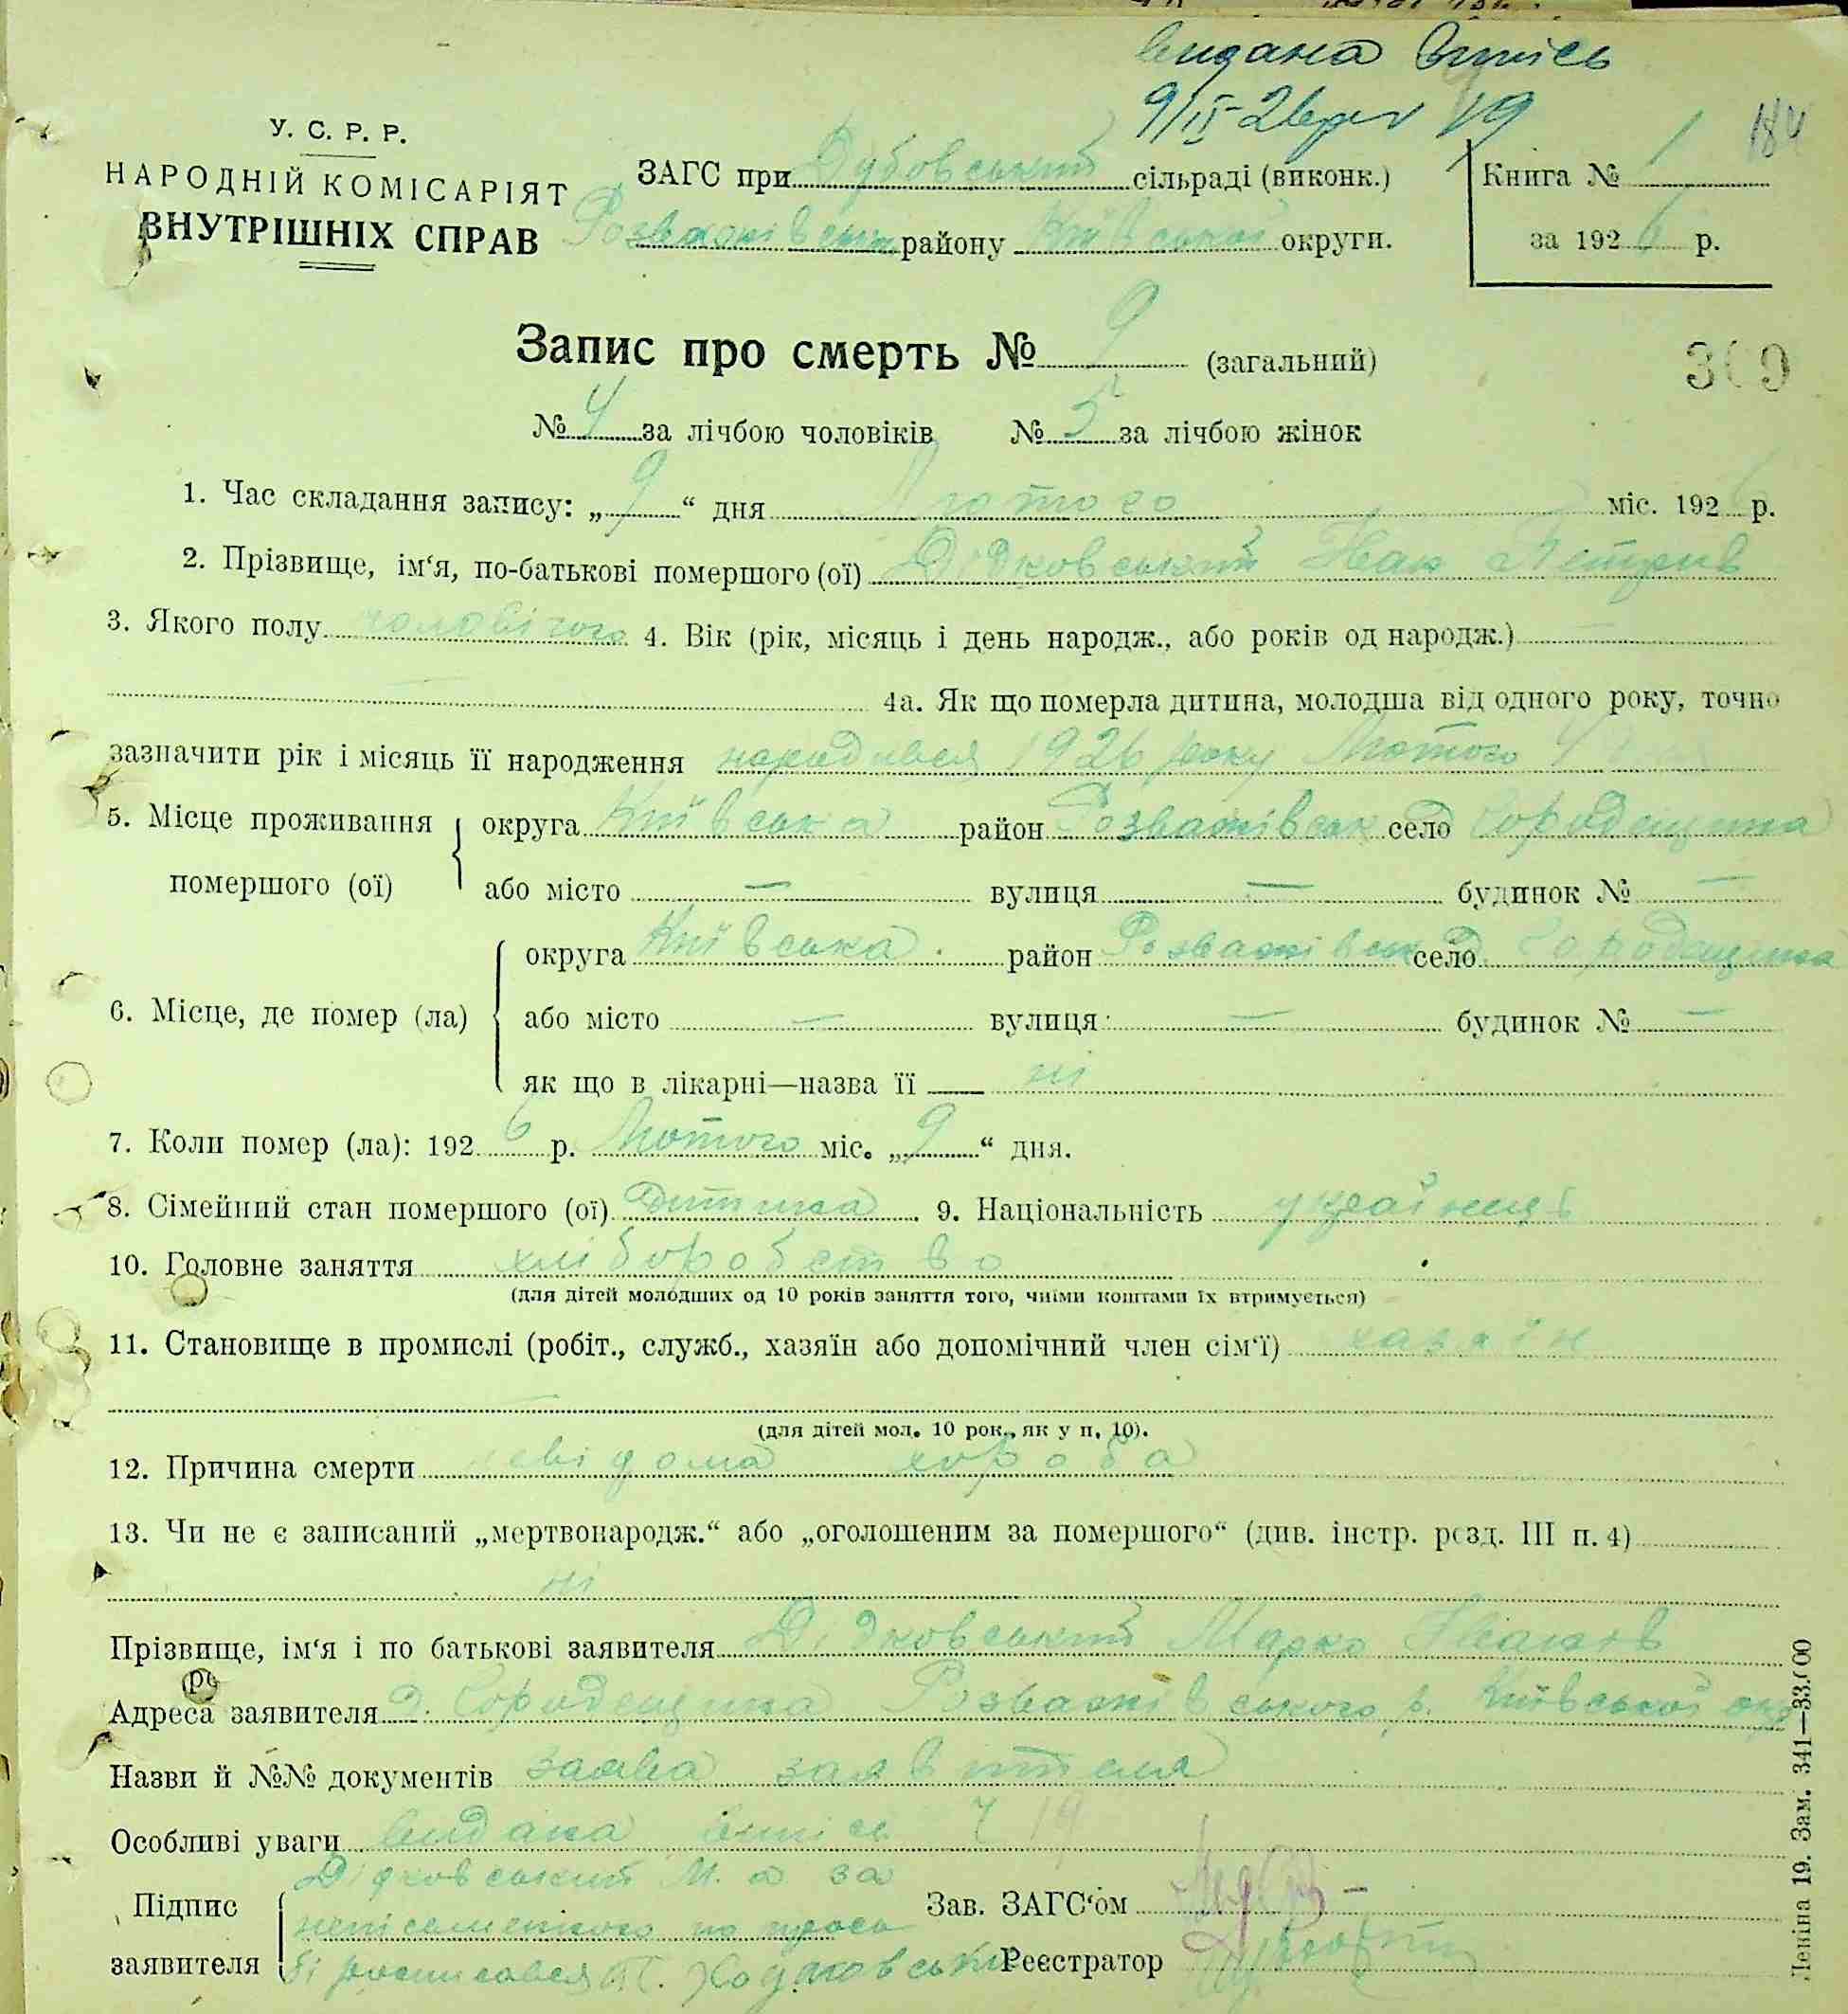 видана виписъ
9/ІІ-26 р № 19
У. С. Р. Р.
НАРОДНІЙ КОМІСАРІЯТ
ВНУТРІШНІХ СПРАВ
ЗАГС при Дубовський сільраді (виконк.)
Розважівськ району Київської округи.
Книга № 1 184
за 1926 р.
Запис про смерть № 9 (загальний)
309
№ 4 за лічбою чоловіків № 5 за лічбою жінок
1. Час складання запису: „9“ дня Лютого міс. 192 р.
2. Прізвище, ім‘я, по-батькові помершого (ої) Дідковський Іван Петрів
3. Якого полу чоловічого 4. Вік (рік, місяць і день народж., або років од народж.) —
— 4а. Як що померла дитина, молодша від одного року, точно
зазначити рік і місяць її народження народився 1926 року Лютого
5. Місце проживання округа Київська район Розважівськ село Городещина
помершого (ої) або місто — вулиця — будинок № —
округа Київська район Розважівськ село Городещина
6. Місце, де помер (ла) або місто — вулиця — будинок № —
як що в лікарні—назва її — ні
7. Коли помер (ла): 1926 р. Лютого міс. „9“ дня.
8. Сімейний стан помершого (ої) дитина 9. Національність українець
10. Головне заняття хліборобство
(для дітей молодших од 10 років заняття того, чиїми коштами їх втримується)
11. Становище в промислі (робіт., служб., хазяїн або допомічний член сім‘ї) хазяїн
(для дітей мол. 10 рок., як у п. 10).
12. Причина смерти невідома хороба
13. Чи не є записаний „мертвонародж.“ або „оголошеним за помершого“ (див. інстр. розд. III п. 4)
ні
Прізвище, ім‘я і по батькові заявителя Дідковський Марко Іванів
Адреса заявителя Городещина Розважівського р. Київської окр
Назви й №№ документів заява заявителя
Особливі уваги видана виписъ № 19
Підпис Дідковський М. а за
неписьменного по прось
заявителя бі росписався Ходаковський
Зав. ЗАГС‘ом
Реєстратор
Леніна 19. Зам. 341—33.000